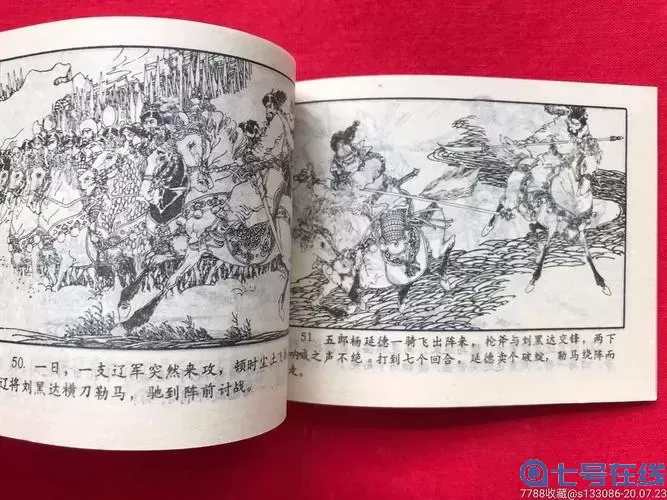 50. 一日，一支辽军突然来攻，顿时尘土飞
辽将刘黑达横刀勒马，驰到阵前讨战。
51. 五郎杨延德一骑飞出阵来，抡斧与刘黑达交锋，两下
呐喊之声不绝。打到七个回合，延德卖个破绽，勒马绕阵而
走。
七号在线
7788收藏@s133086-20.07.23